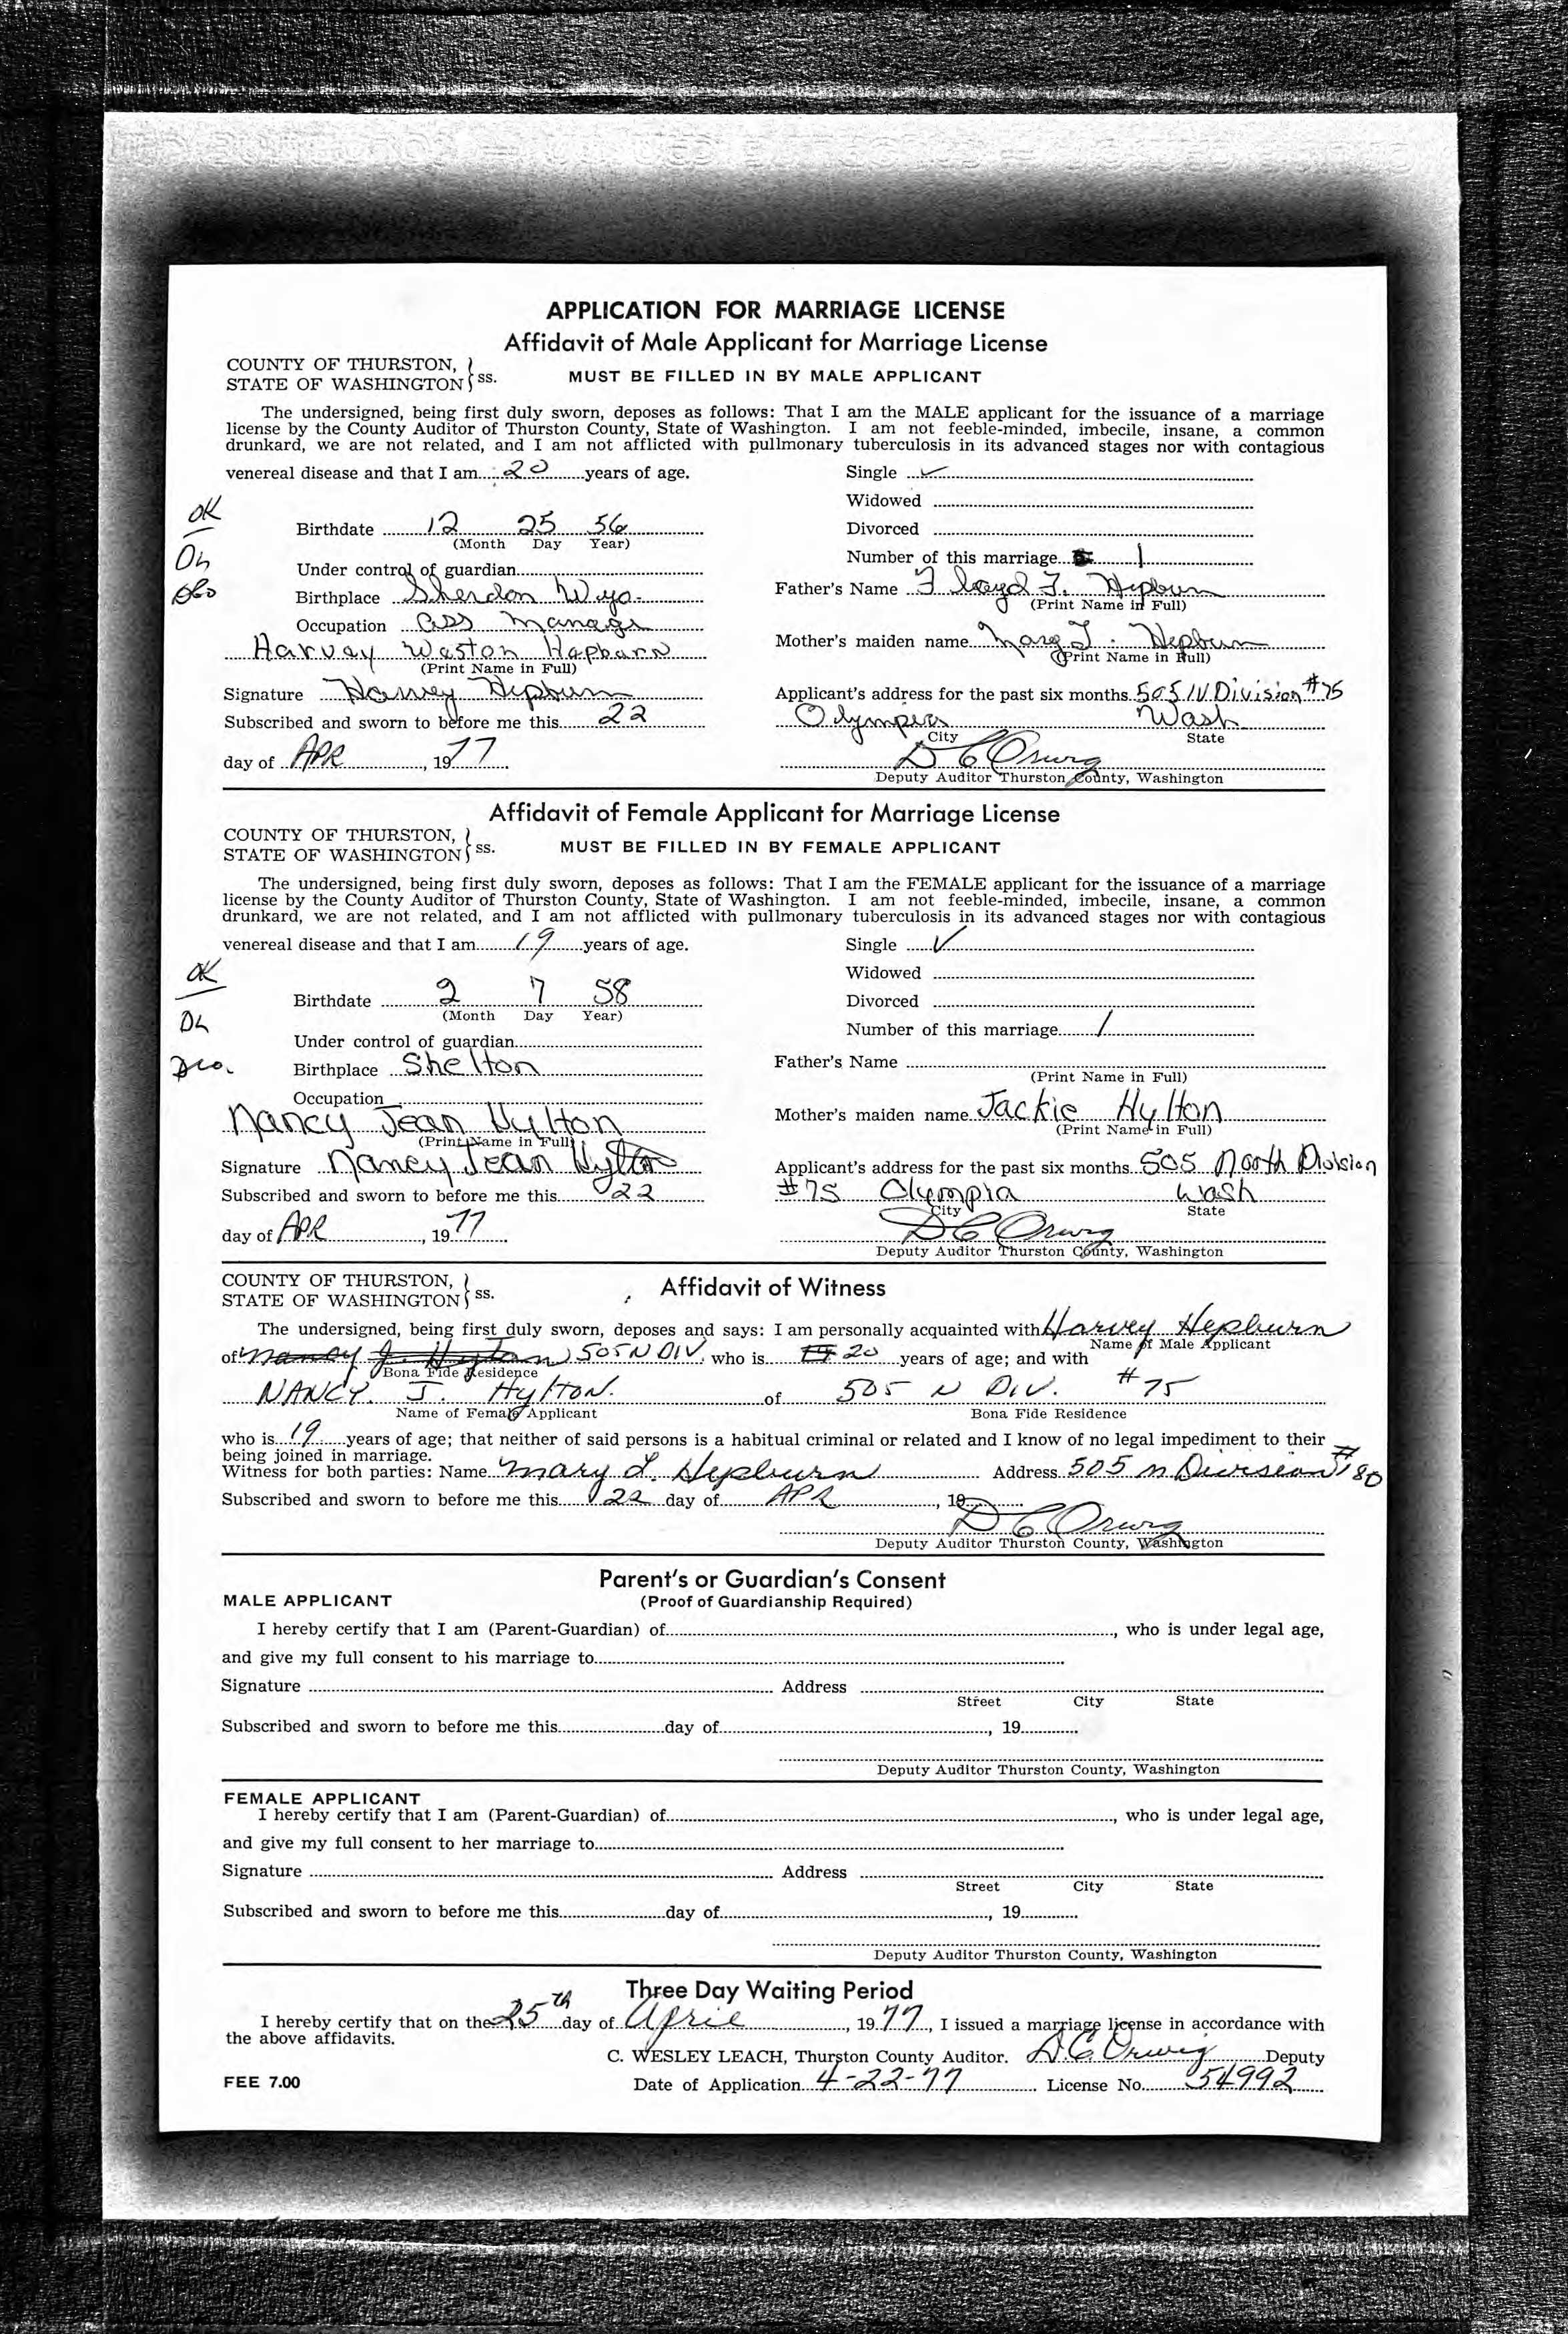 APPLICATION FOR MARRIAGE LICENSE
Affidavit of Male Applicant for Marriage License
COUNTY OF THURSTON,
STATE OF WASHINGTON } ss.
MUST BE FILLED IN BY MALE APPLICANT
The undersigned, being first duly sworn, deposes as follows: That I am the MALE applicant for the issuance of a marriage
license by the County Auditor of Thurston County, State of Washington. I am not feeble-minded, imbecile, insane, a common
drunkard, we are not related, and I am not afflicted with pulmonary tuberculosis in its advanced stages nor with contagious
venereal disease and that I am 20 years of age. Single ✓
Widowed
OK
Birthdate 12 25 56 Divorced
(Month Day Year)
Number of this marriage 1
Under control of guardian
Father's Name Floyd F. Hepburn
(Print Name in Full)
Birthplace Sherdon Wyo.
Occupation ass manager
Mother's maiden name Mary L. Hepburn
(Print Name in Full)
Harvey Weston Hepburn
(Print Name in Full)
Signature Harvey Hepburn Applicant's address for the past six months 505 N Division #75
Subscribed and sworn to before me this 22 Olympia Wash
City State
day of APR, 1977 D C Orwig
Deputy Auditor Thurston County, Washington
Affidavit of Female Applicant for Marriage License
COUNTY OF THURSTON,
STATE OF WASHINGTON } ss.
MUST BE FILLED IN BY FEMALE APPLICANT
The undersigned, being first duly sworn, deposes as follows: That I am the FEMALE applicant for the issuance of a marriage
license by the County Auditor of Thurston County, State of Washington. I am not feeble-minded, imbecile, insane, a common
drunkard, we are not related, and I am not afflicted with pulmonary tuberculosis in its advanced stages nor with contagious
venereal disease and that I am 19 years of age. Single ✓
Widowed
OK
Birthdate 2 7 58 Divorced
(Month Day Year)
Number of this marriage 1
Under control of guardian
Father's Name
(Print Name in Full)
Birthplace Shelton
Occupation
Mother's maiden name Jackie Hylton
(Print Name in Full)
Nancy Jean Hylton
(Print Name in Full)
Signature Nancy Jean Hylton Applicant's address for the past six months 505 North Division
Subscribed and sworn to before me this 22 #75 Olympia Wash
City State
day of APR, 1977 D C Orwig
Deputy Auditor Thurston County, Washington
COUNTY OF THURSTON,
STATE OF WASHINGTON } ss.
Affidavit of Witness
The undersigned, being first duly sworn, deposes and says: I am personally acquainted with Harvey Hepburn
Name of Male Applicant
of Nancy J. Hylton 505 N DIV. who is 19 20 years of age; and with
Bona Fide Residence
NANCY. J. Hylton. of 505 N DIV. #75
Name of Female Applicant Bona Fide Residence
who is 19 years of age; that neither of said persons is a habitual criminal or related and I know of no legal impediment to their
being joined in marriage.
Witness for both parties: Name Mary L. Hepburn Address 505 N Division #80
Subscribed and sworn to before me this 22 day of APR, 19
D C Orwig
Deputy Auditor Thurston County, Washington
Parent's or Guardian's Consent
MALE APPLICANT (Proof of Guardianship Required)
I hereby certify that I am (Parent-Guardian) of, who is under legal age,
and give my full consent to his marriage to
Signature Address
Street City State
Subscribed and sworn to before me this day of, 19
Deputy Auditor Thurston County, Washington
FEMALE APPLICANT
I hereby certify that I am (Parent-Guardian) of, who is under legal age,
and give my full consent to her marriage to
Signature Address
Street City State
Subscribed and sworn to before me this day of, 19
Deputy Auditor Thurston County, Washington
Three Day Waiting Period
I hereby certify that on the 25th day of April, 1977, I issued a marriage license in accordance with
the above affidavits.
C. WESLEY LEACH, Thurston County Auditor. D C Orwig Deputy
FEE 7.00 Date of Application 4-22-77 License No. 54992